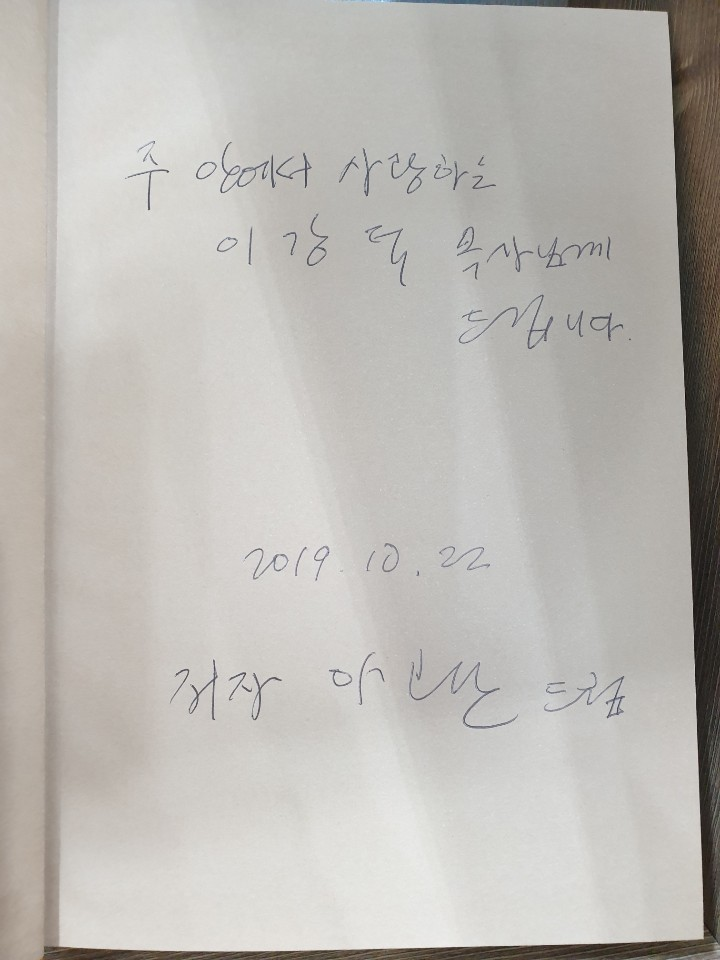 주 안에서 사랑하는
이강덕 목사님께
드립니다.
2019. 10. 22
저자 드림